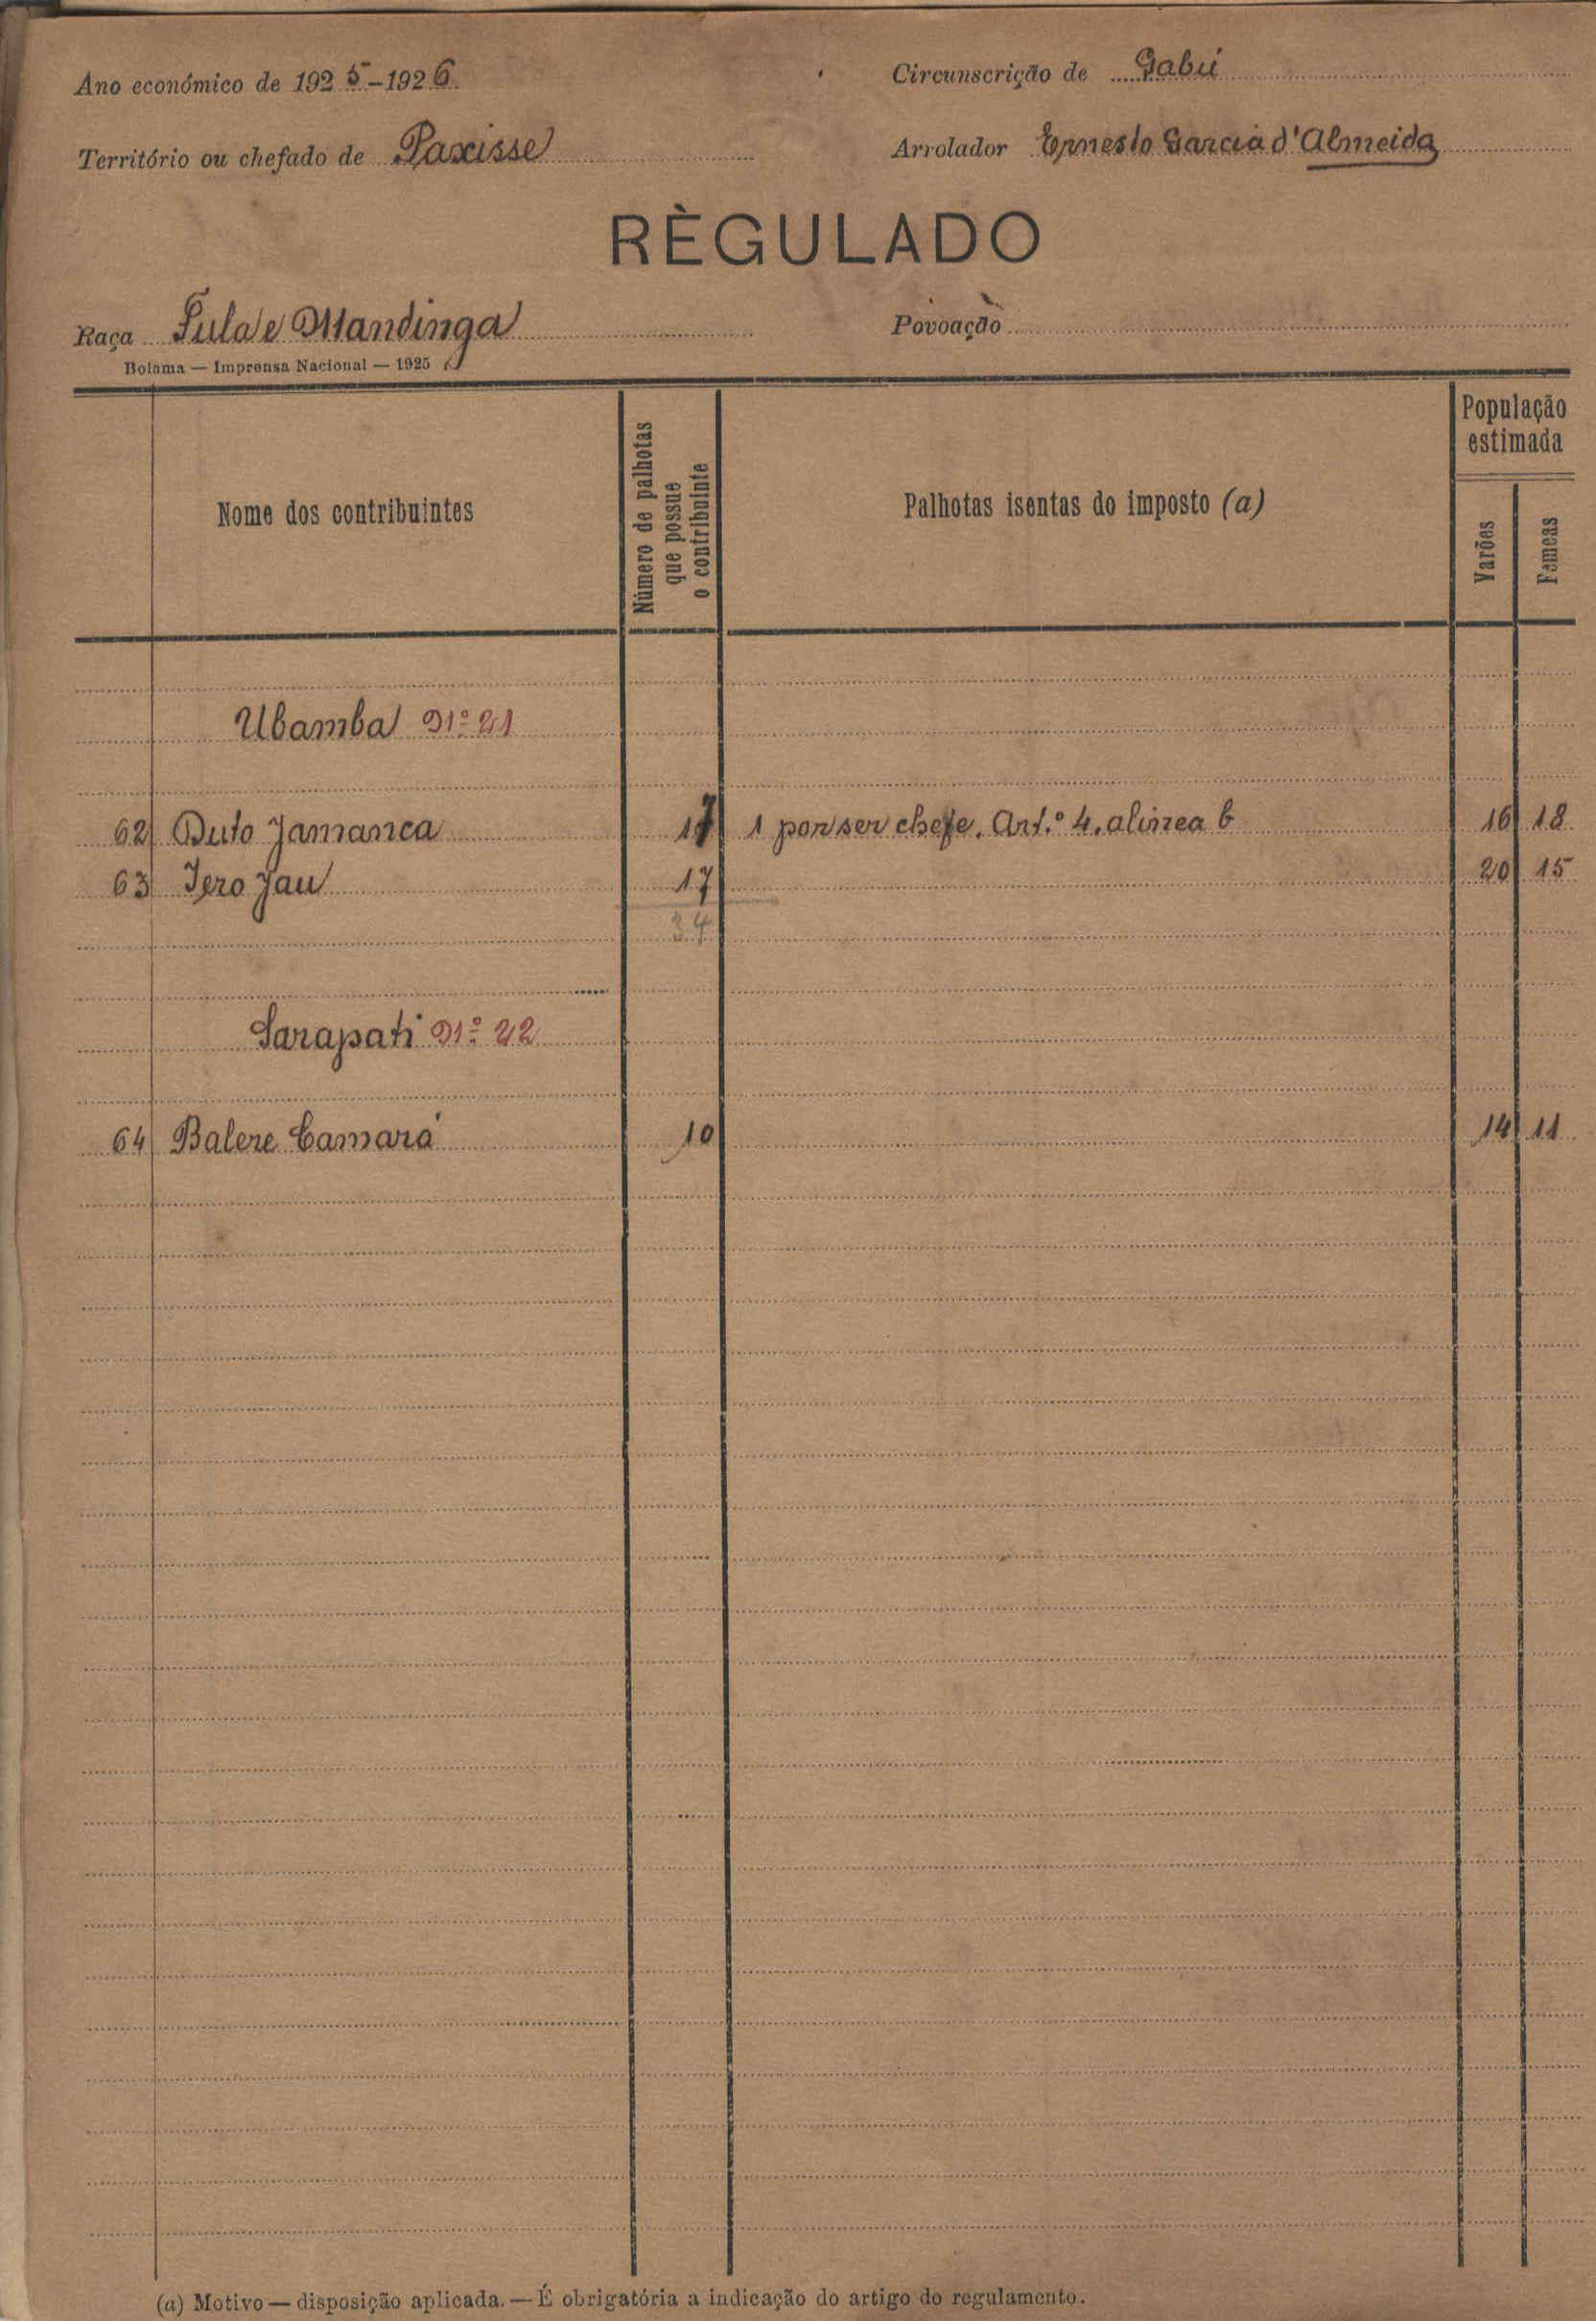 Ano económico de 1925-1926.
Circunscrição de Gabú
Território ou chefado de Paxisse
Arrolador Ernesto Garcia d'Almeida
RÈGULADO
Raça Fula e Mandinga
Povoação
Bolama — Imprensa Nacional — 1925
Nome dos contribuintes
Número de palhotas que possue o contribuinte
Palhotas isentas do imposto (a)
População estimada
Varões
Fêmeas
Ubamba Nº 21
62 Duto Jamanca 17 1 por ser chefe. Art.º 4. alinea b 16 18
63 Iero Jau 17 20 15
34
Sarapati Nº 22
64 Balere Camará 10 14 11
(a) Motivo — disposição aplicada. — É obrigatória a indicação do artigo do regulamento.